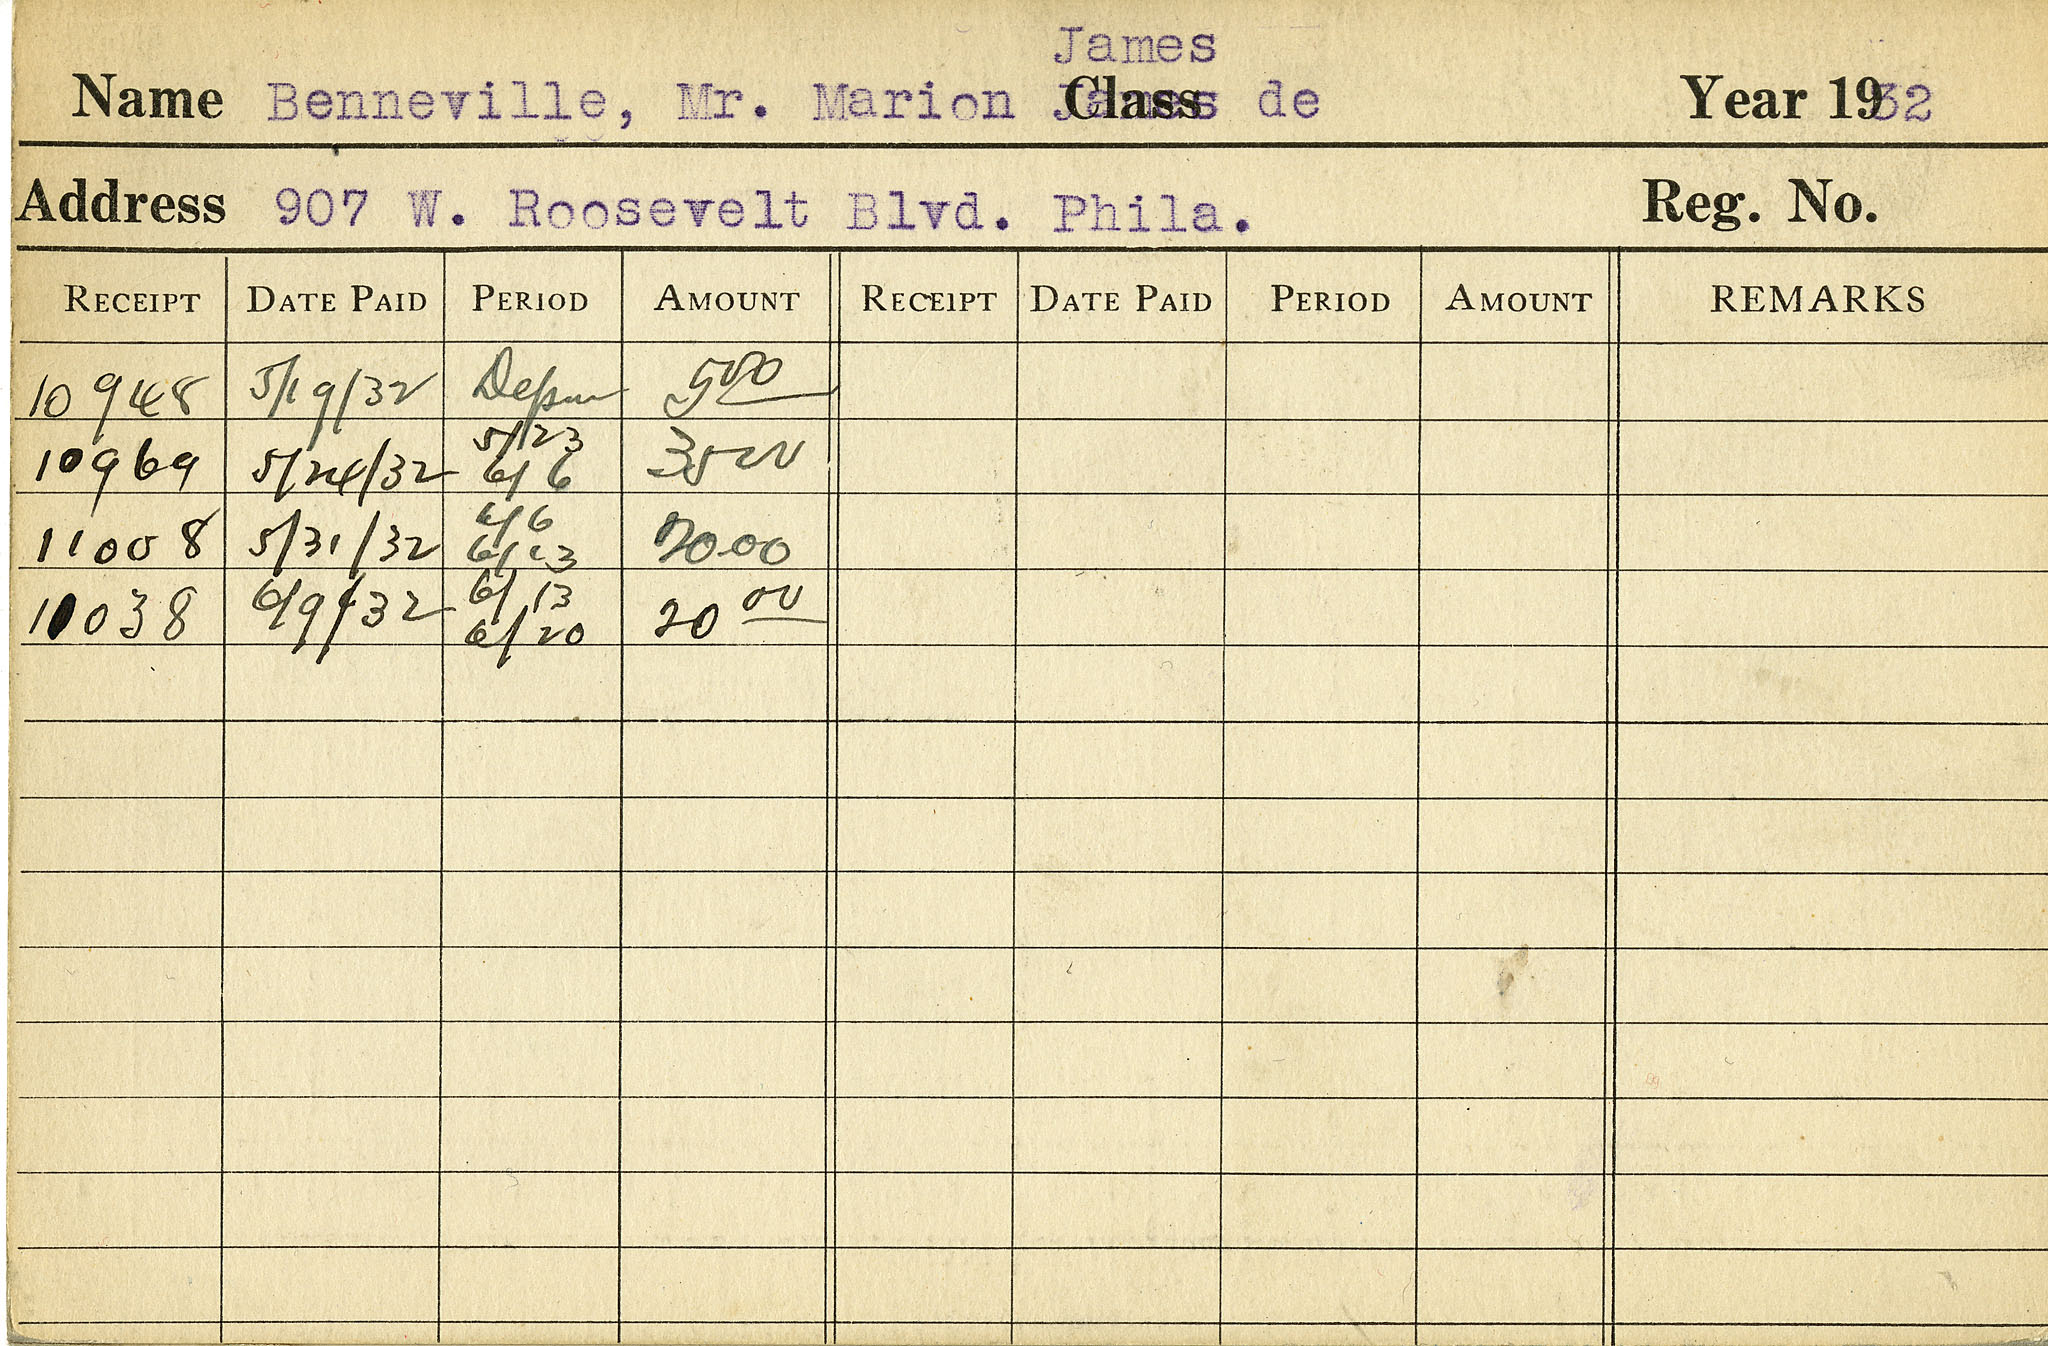 James
Name Benneville, Mr. Marion James Class de Year 1932
Address 907 W. Roosevelt Blvd. Phila. Reg. No.
RECEIPT DATE PAID PERIOD AMOUNT RECEIPT DATE PAID PERIOD AMOUNT REMARKS
10948 5/19/32 5 00
5/23
10969 5/24/32 6/6 35 00
6/6
11008 5/31/32 6/13 20 00
6/13
11038 6/9/32 20 00
6/20